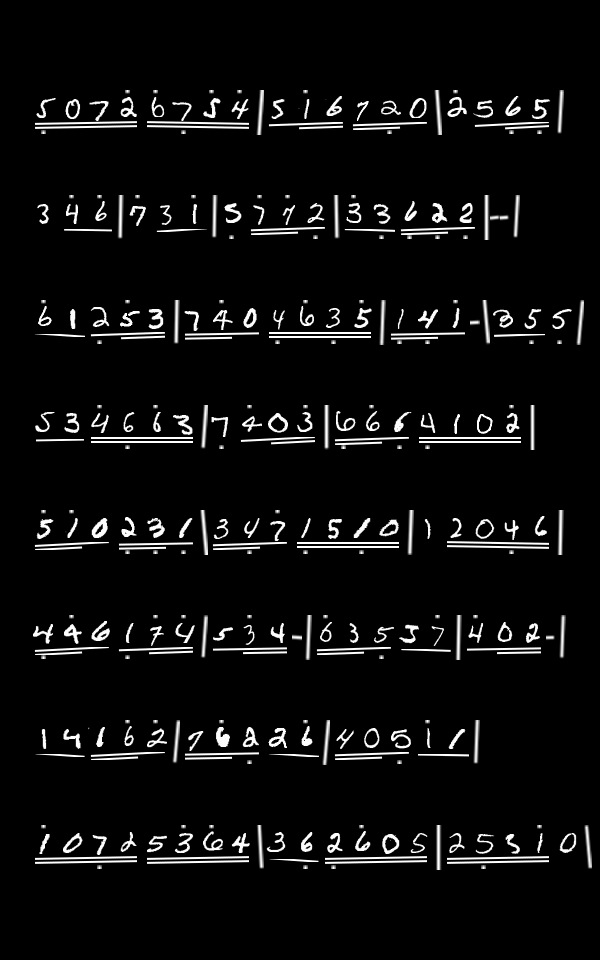 5 0 7 2 6 7 5 4 | 5 1 6 7 2 0 | 2 5 6 5 |
3 4 6 | 7 3 1 | 5 7 7 2 | 3 3 6 2 2 | - - |
6 1 2 5 3 | 7 4 0 4 6 3 5 | 1 4 1 - | 3 5 5 |
5 3 4 6 6 3 | 7 4 0 3 | 6 6 6 4 1 0 2 |
5 1 0 2 3 1 | 3 4 7 1 5 1 0 | 1 2 0 4 6 |
4 4 6 1 7 4 | 5 3 4 - | 6 3 5 5 7 | 4 0 2 - |
1 4 1 6 2 | 7 6 2 2 6 | 4 0 5 1 1 |
1 0 7 2 5 3 6 4 | 3 6 2 6 0 5 | 2 5 3 1 0 |